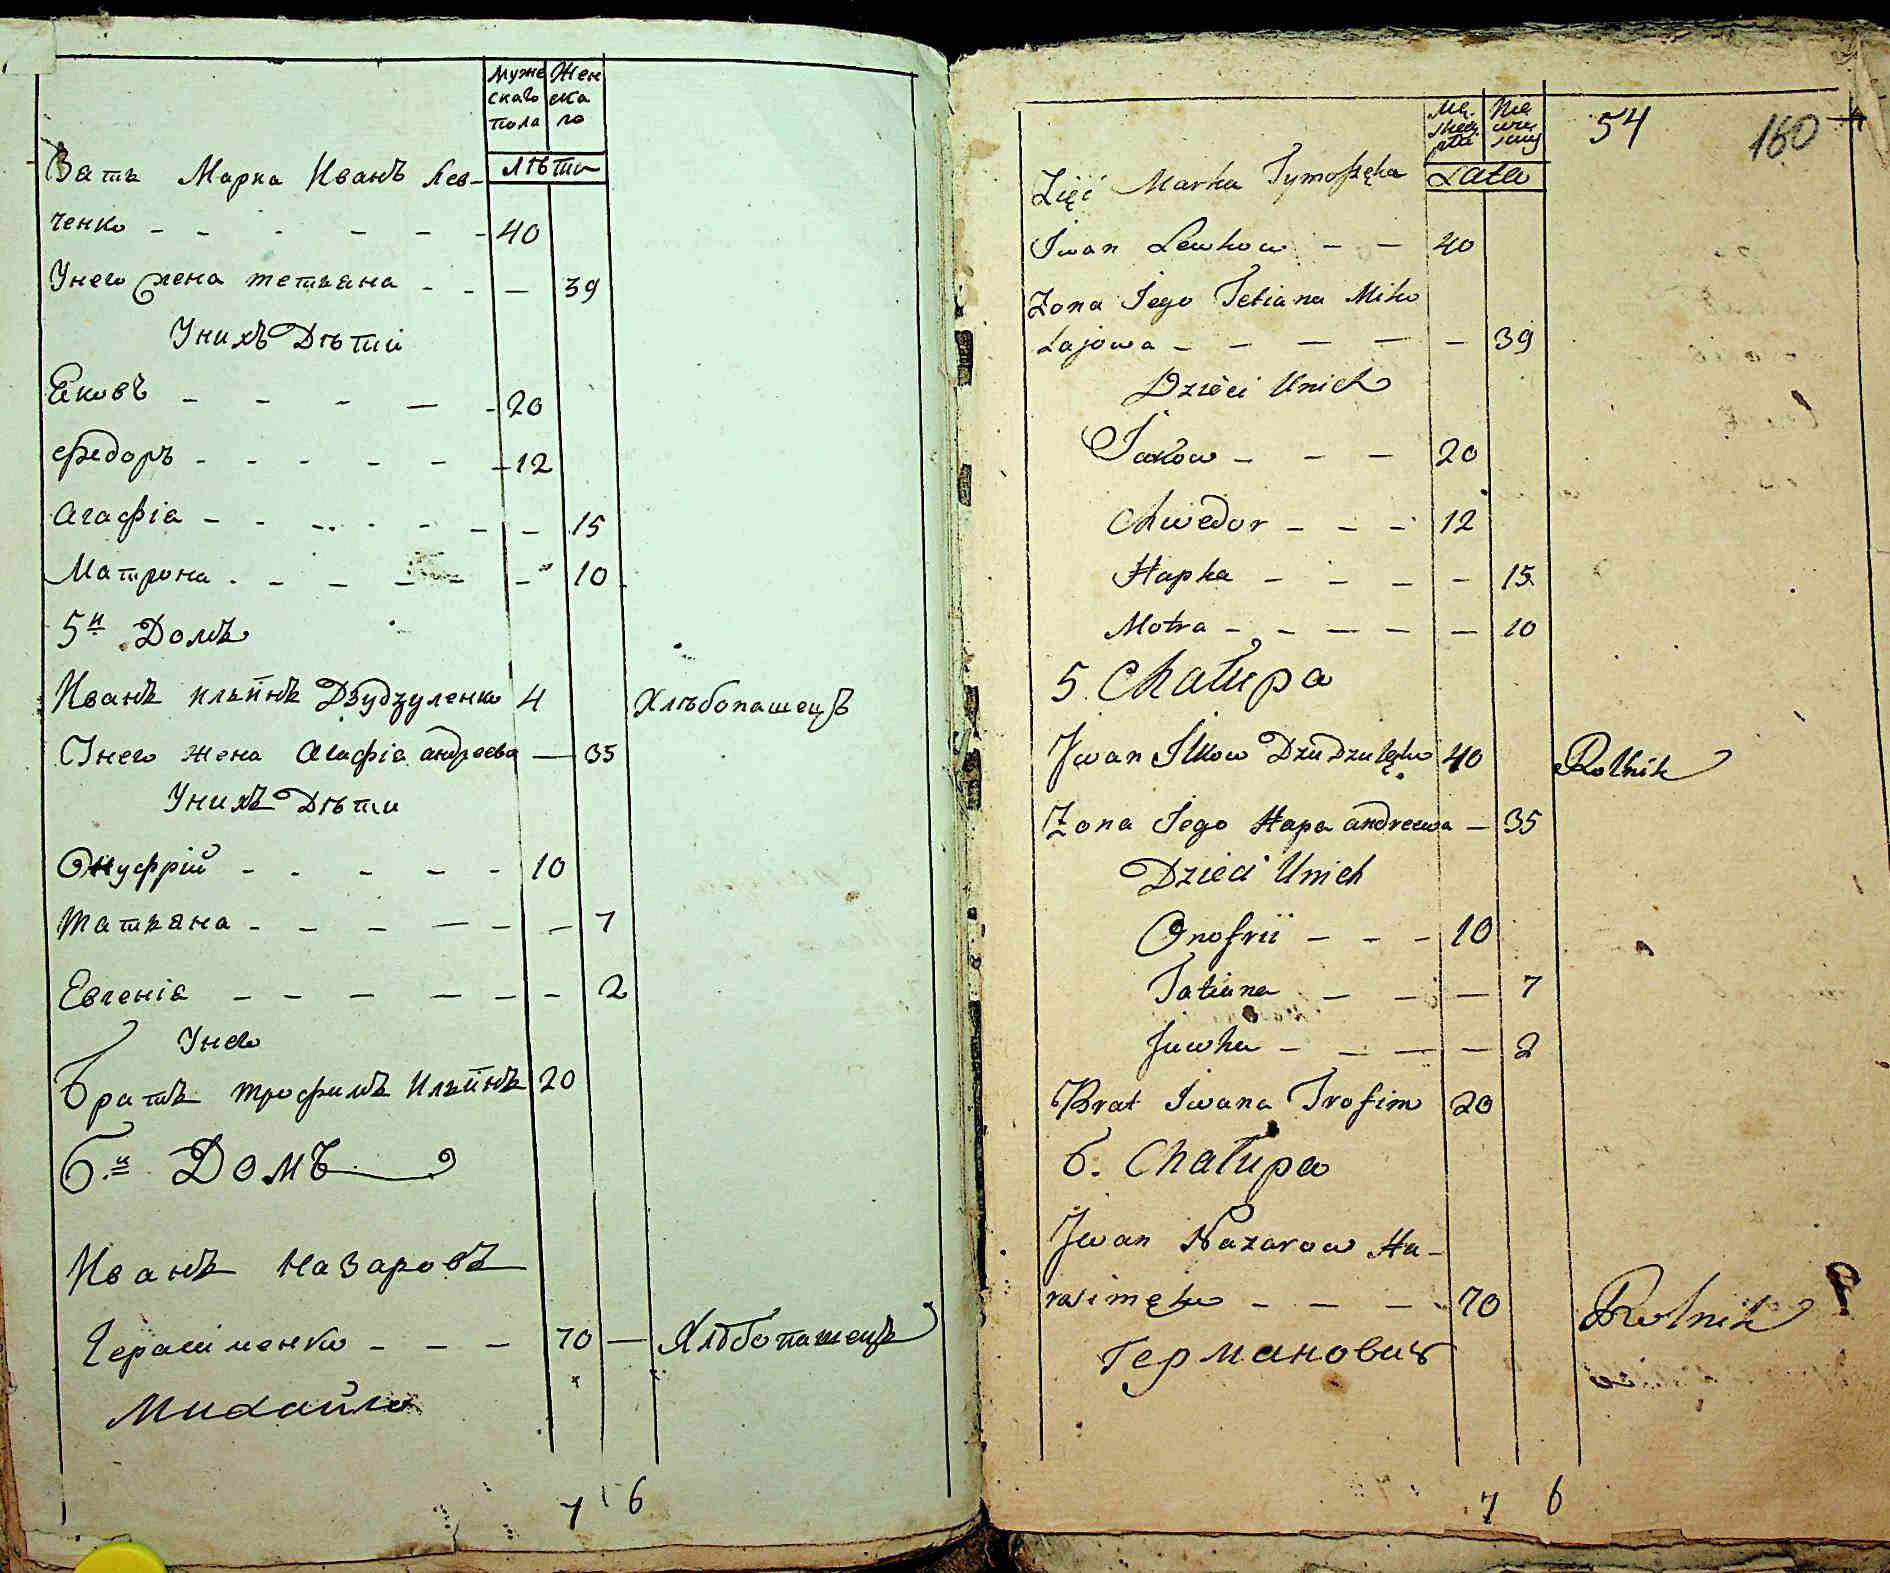 Муже Жен
скаго ска
пола го
лѣта
Зать Марка Иванъ Лев-
ченко - - - - - - 40
Унего жена тетьяна - - - 39
Унихъ Дѣти
Яковъ - - - - - 20
федоръ - - - - - - 12
Агафія - - - - - - - 15
Матрона - - - - - - 10
5й Домъ
Иванъ ильинъ Дзудзуленко 4 Хлѣбопашецъ
Унего жена Агафія андреева — 35
Унихъ Дѣти
Онуфрій - - - - - 10
татьяна - - - - - - 7
Евгенія - - - - - - 2
Унего
Братъ трофимъ Ильинъ 20
6й Домъ
Иванъ Назаровъ
Герасименко - - - 70 — Хлѣбопашецъ
Михайло
7 6
54 160
Lata
Zięć Marka Tymoszęka
Iwan Lewkow - - 40
Zona Iego Tetiana Miko
łajowa - - - - - 39
Dzieci Unich
Jakow - - - 20
Chwedor - - - 12
Hapka - - - - - 15
Motra - - - - - 10
5. Chałupa
Jwan Ilkow Dzudzulęko 40 Rolnik
Zona Iego Hapa andreewa — 35
Dzieci Unich
Onofrii - - - 10
Tatiana - - - 7
Juwka - - - - 2
Brat Iwana Trofim 20
6. Chałupa
Jwan Nazarow Ha-
rasimęko - - - - 70 Rolnik
Германович
7 6